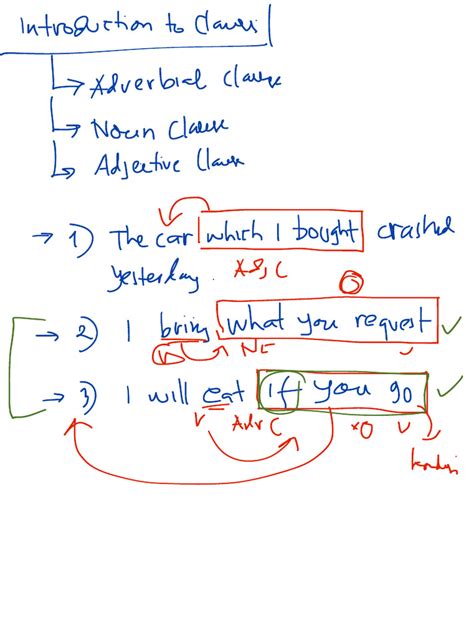 Introduction to Clauses
Adverbial Clause
Noun Clause
Adjective Clause
→ 1) The car which I bought crashed
yesterday. Adj C
→ 2) I bring what you request ✓
V NC
→ 3) I will eat if you go. ✓
V Adv C ×O V